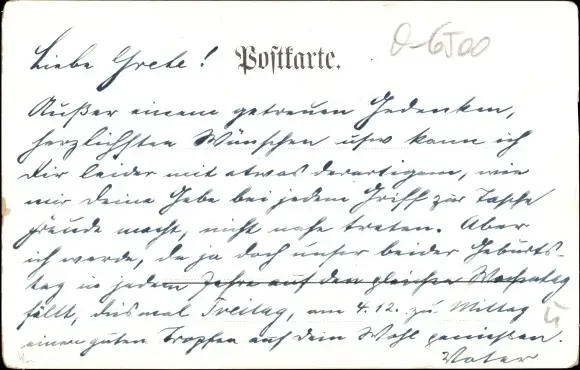 Liebe Grete! Postkarte. O-6500
Außer einem getreuen Gedenken,
herzlichsten Wünschen usw kann ich
Dir leider mit etwas derartigem, wie
mir Deine Gabe bei jedem Griff zur Tasche
Freude macht, nicht nahe treten. Aber
ich werde, da ja doch unser beider Geburts-
tag in jedem Jahre auf den gleichen Wochentag
fällt, diesmal Freitag, am 4.12. zu Mittag
einen guten Tropfen auf Dein Wohl genießen.
Vater